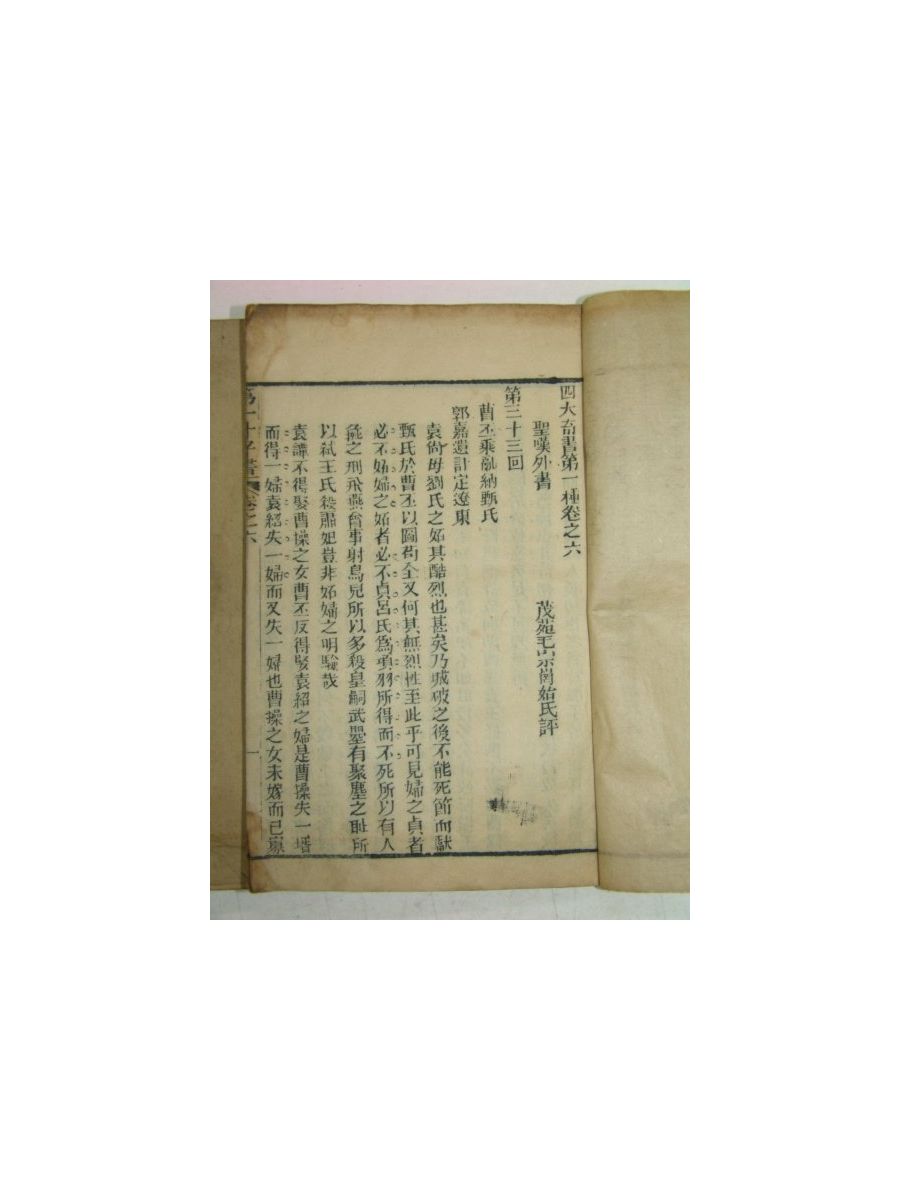 四大奇書第一種卷之六
聖嘆外書
茂苑毛宗崗始氏評
第三十三回
曹丕乘亂納甄氏
郭嘉遺計定遼東
袁尙母劉氏之妬其酷烈也甚矣乃城破之後不能死節而獻
甄氏於曹丕以圖苟全又何其無烈性至此乎可見婦之貞者
必不妬婦之妬者必不貞呂氏為項羽所得而不死所以有人
彘之刑飛燕會事射鳥兒所以多殺皇嗣武曌有聚麀之耻所
以弑王氏殺蕭妃豈非妬婦之明驗哉
袁譚不得娶曹操之女曹丕反得娶袁紹之婦是曹操失一壻
而得一婦袁紹失一婦而又失一婦也曹操之女未嫁而已寡
第一才子書 卷之六 一